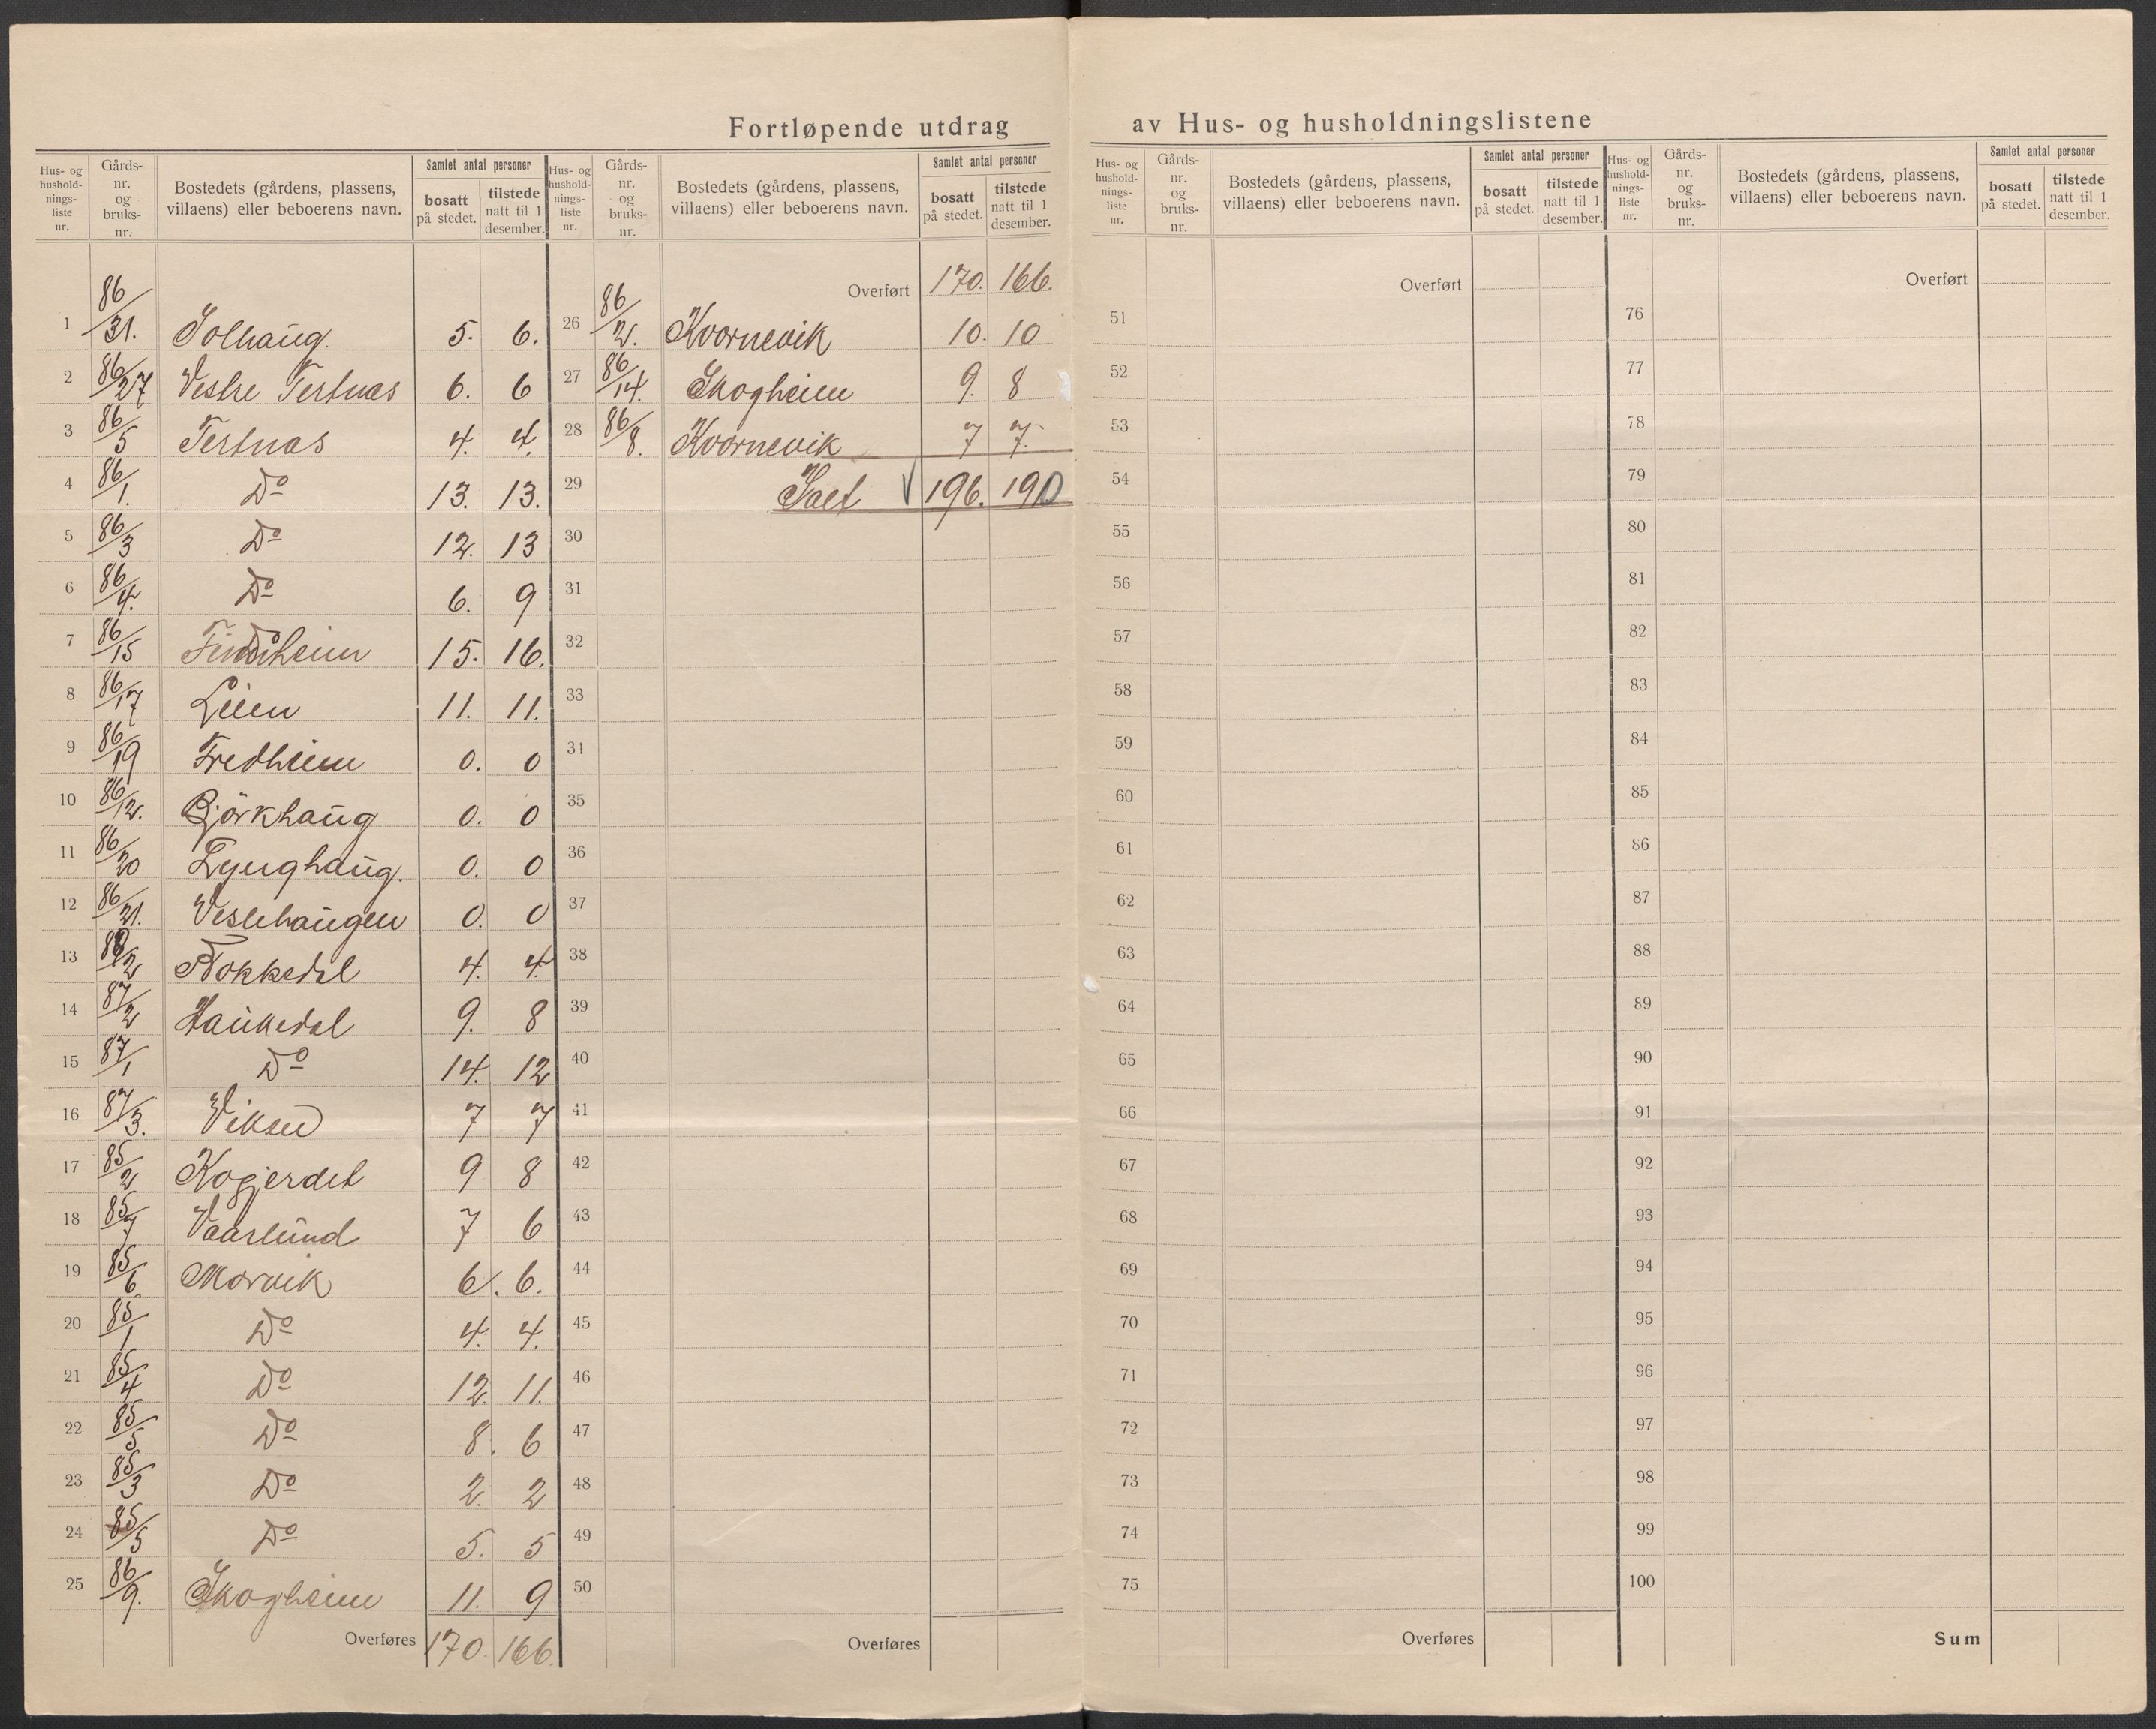 Fortløpende utdrag av Hus- og husholdningslistene
Hus- og hushold- nings- liste nr. | Gårds- nr. og bruks- nr. | Bostedets (gårdens, plassens, villaens) eller beboerens navn. | Samlet antal personer | bosatt på stedet. | tilstede natt til 1 desember.
1 86/31. Solhaug. 5. 6.
2 86/27 Vestre Tertnæs 6. 6
3 86/5 Tertnæs 4. 4.
4 86/1. Do 13. 13.
5 86/3 Do 12. 13
6 86/4. Do 6. 9
7 86/15 15. 16.
8 86/17 Lien 11. 11.
9 86/19 Fredheim 0. 0
10 86/12. Björkhaug 0. 0
11 86/20 Lynghaug. 0. 0
12 86/21. Veslehaugen 0. 0
13 4. 4.
14 87/2 Haukedal 9. 8
15 87/1 Do 14. 12
16 87/3. Viken 7 7
17 85/2 Kogjerdet 9 8
18 85/7 Vaarlund 7 6
19 85/6 Morvik 6. 6.
20 85/1 Do 4. 4.
21 85/4 Do 12. 11.
22 85/5 Do 8. 6
23 85/3 Do 2. 2
24 85/5 Do 5. 5
25 86/9. Skogheim 11. 9
Overføres 170. 166.
Hus- og hushold- nings- liste nr. | Gårds- nr. og bruks- nr. | Bostedets (gårdens, plassens, villaens) eller beboerens navn. | Samlet antal personer | bosatt på stedet. | tilstede natt til 1 desember.
Overført 170. 166.
26 86/2. Kvornevik 10. 10
27 86/14. Skogheim 9. 8
28 86/8. Kvornevik 7 7.
29 Ialt 196. 190
30
31
32
33
34
35
36
37
38
39
40
41
42
43
44
45
46
47
48
49
50
Overføres
Hus- og hushold- nings- liste nr. | Gårds- nr. og bruks- nr. | Bostedets (gårdens, plassens, villaens) eller beboerens navn. | Samlet antal personer | bosatt på stedet. | tilstede natt til 1 desember.
Overført
51
52
53
54
55
56
57
58
59
60
61
62
63
64
65
66
67
68
69
70
71
72
73
74
75
Overføres
Hus- og hushold- nings- liste nr. | Gårds- nr. og bruks- nr. | Bostedets (gårdens, plassens, villaens) eller beboerens navn. | Samlet antal personer | bosatt på stedet. | tilstede natt til 1 desember.
Overført
76
77
78
79
80
81
82
83
84
85
86
87
88
89
90
91
92
93
94
95
96
97
98
99
100
Sum